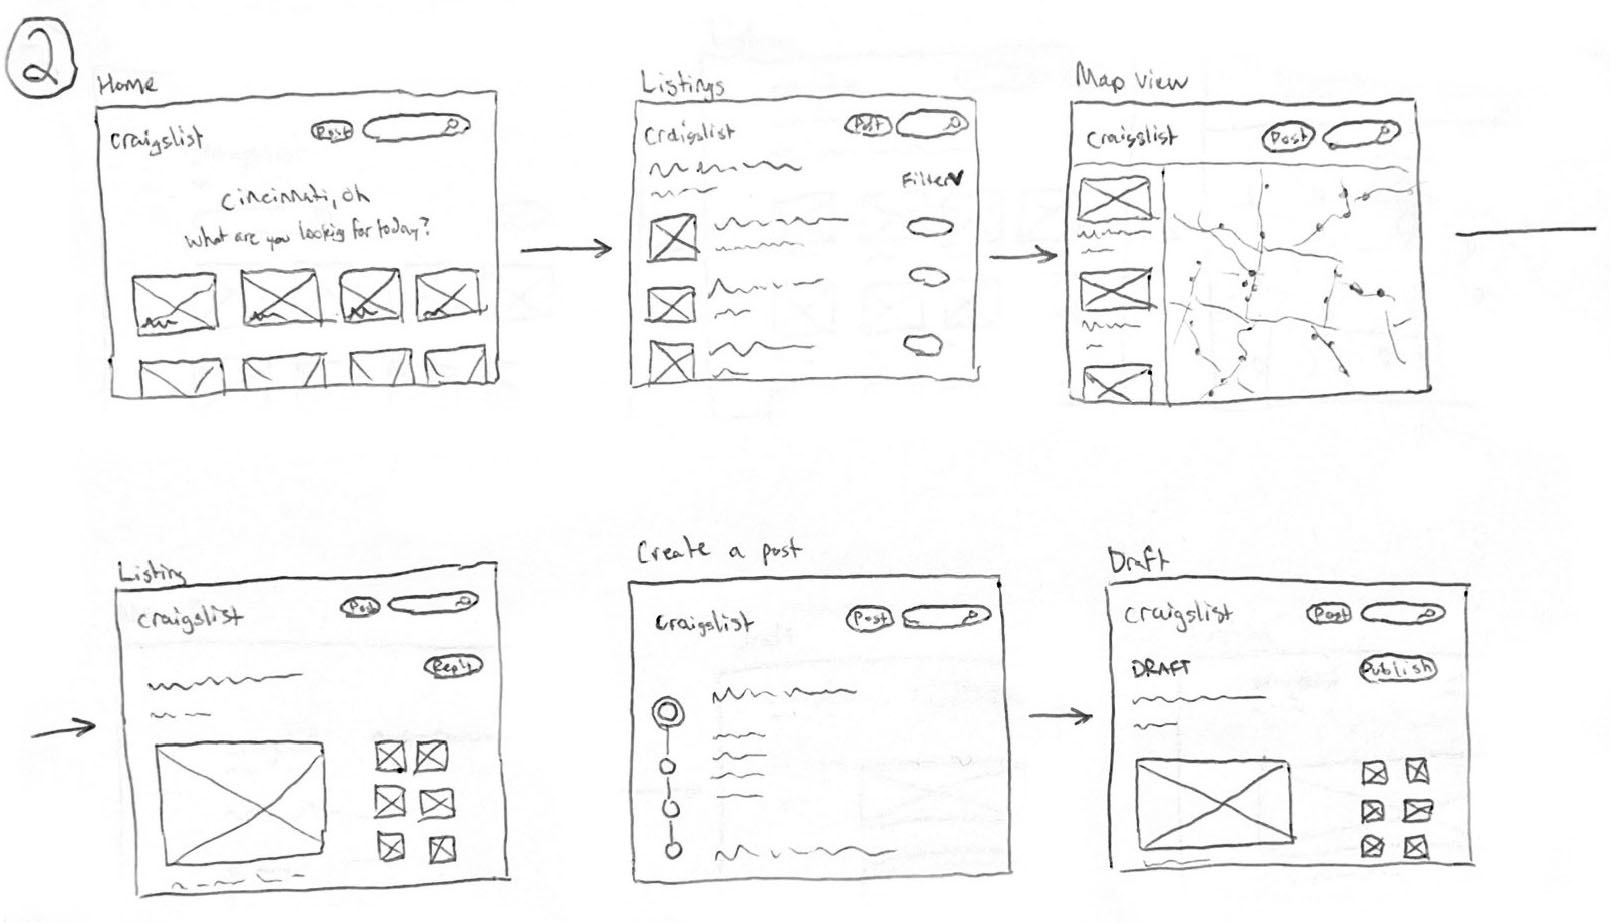 2
Home
craigslist
Post
Cincinnati, Oh
What are you looking for today?
Listings
Craigslist
Post
Filter
Map view
Craigslist
Post
Listing
craigslist
Post
Reply
Create a post
craigslist
Post
Draft
craigslist
Post
DRAFT
Publish